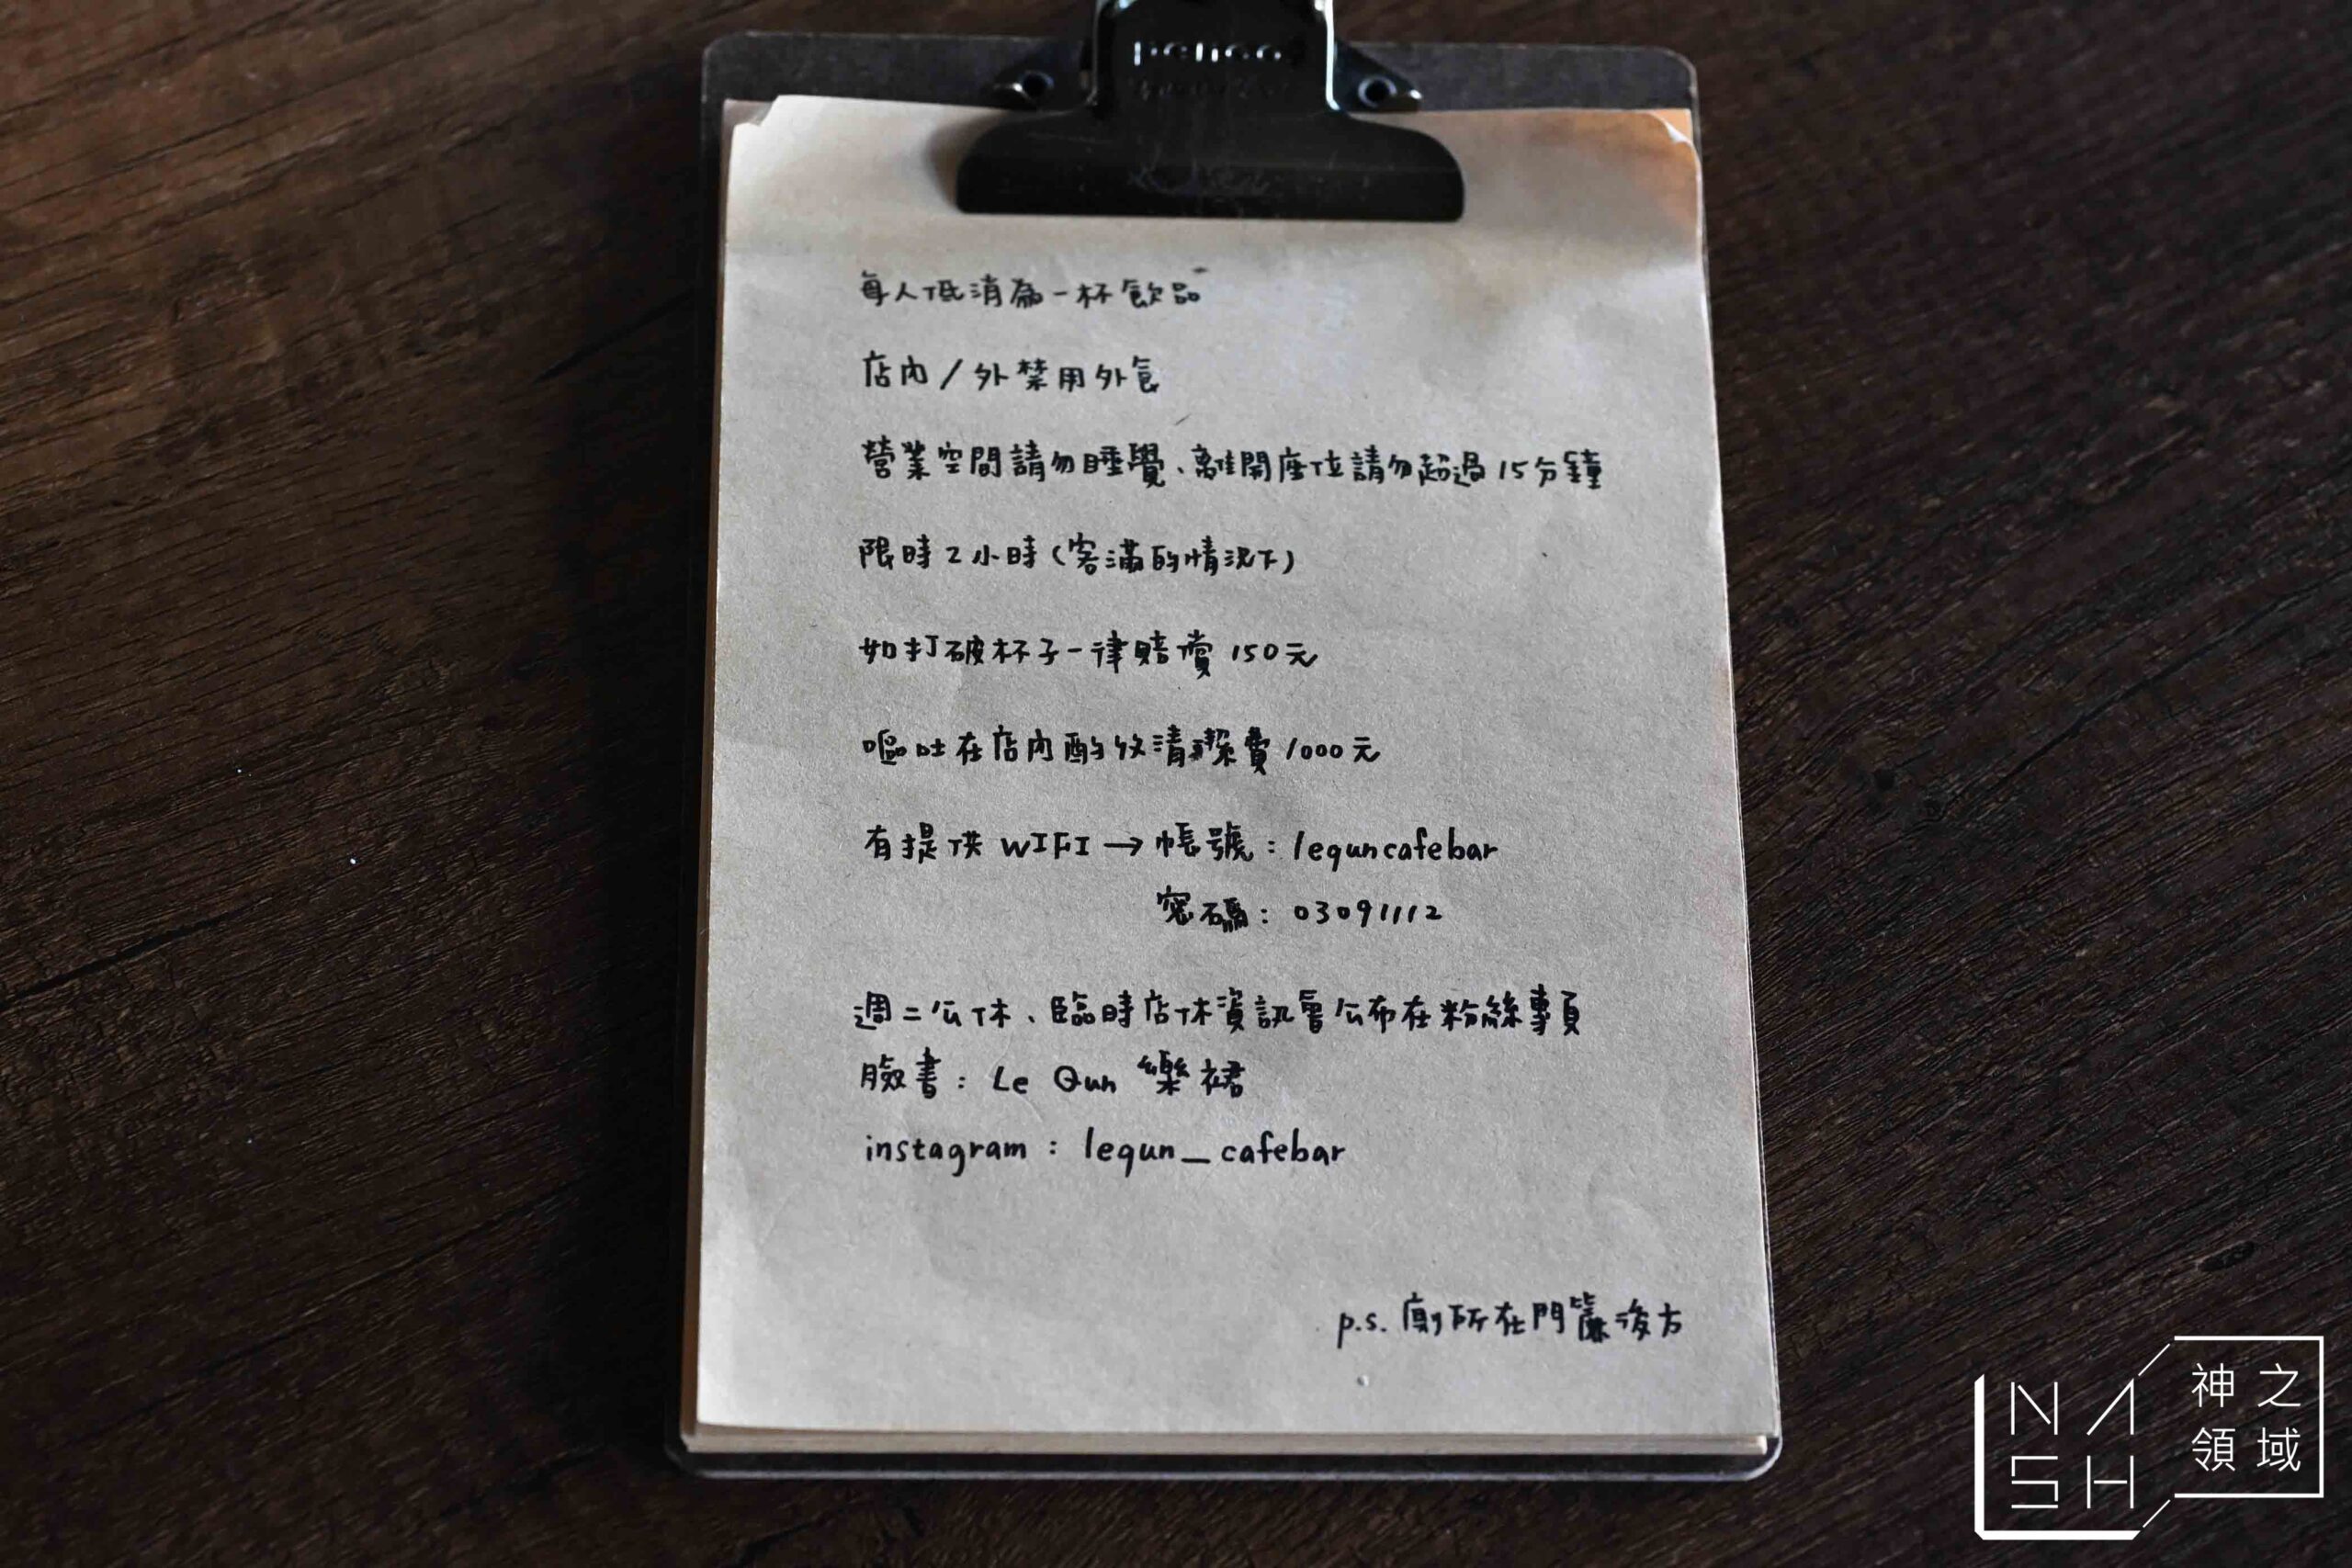 每人低消為一杯飲品
店內/外禁用外食
營業空間請勿睡覺、離開座位請勿超過15分鐘
限時2小時(客滿的情況下)
如打破杯子一律賠償150元
嘔吐在店內酌收清潔費1000元
有提供WIFI→帳號:lequncafebar
密碼:03091112
週二公休、臨時店休資訊會公布在粉絲專頁
臉書:Le Qun 樂裙
instagram:lequn_cafebar
p.s.廁所在門簾後方
NASH
神之領域